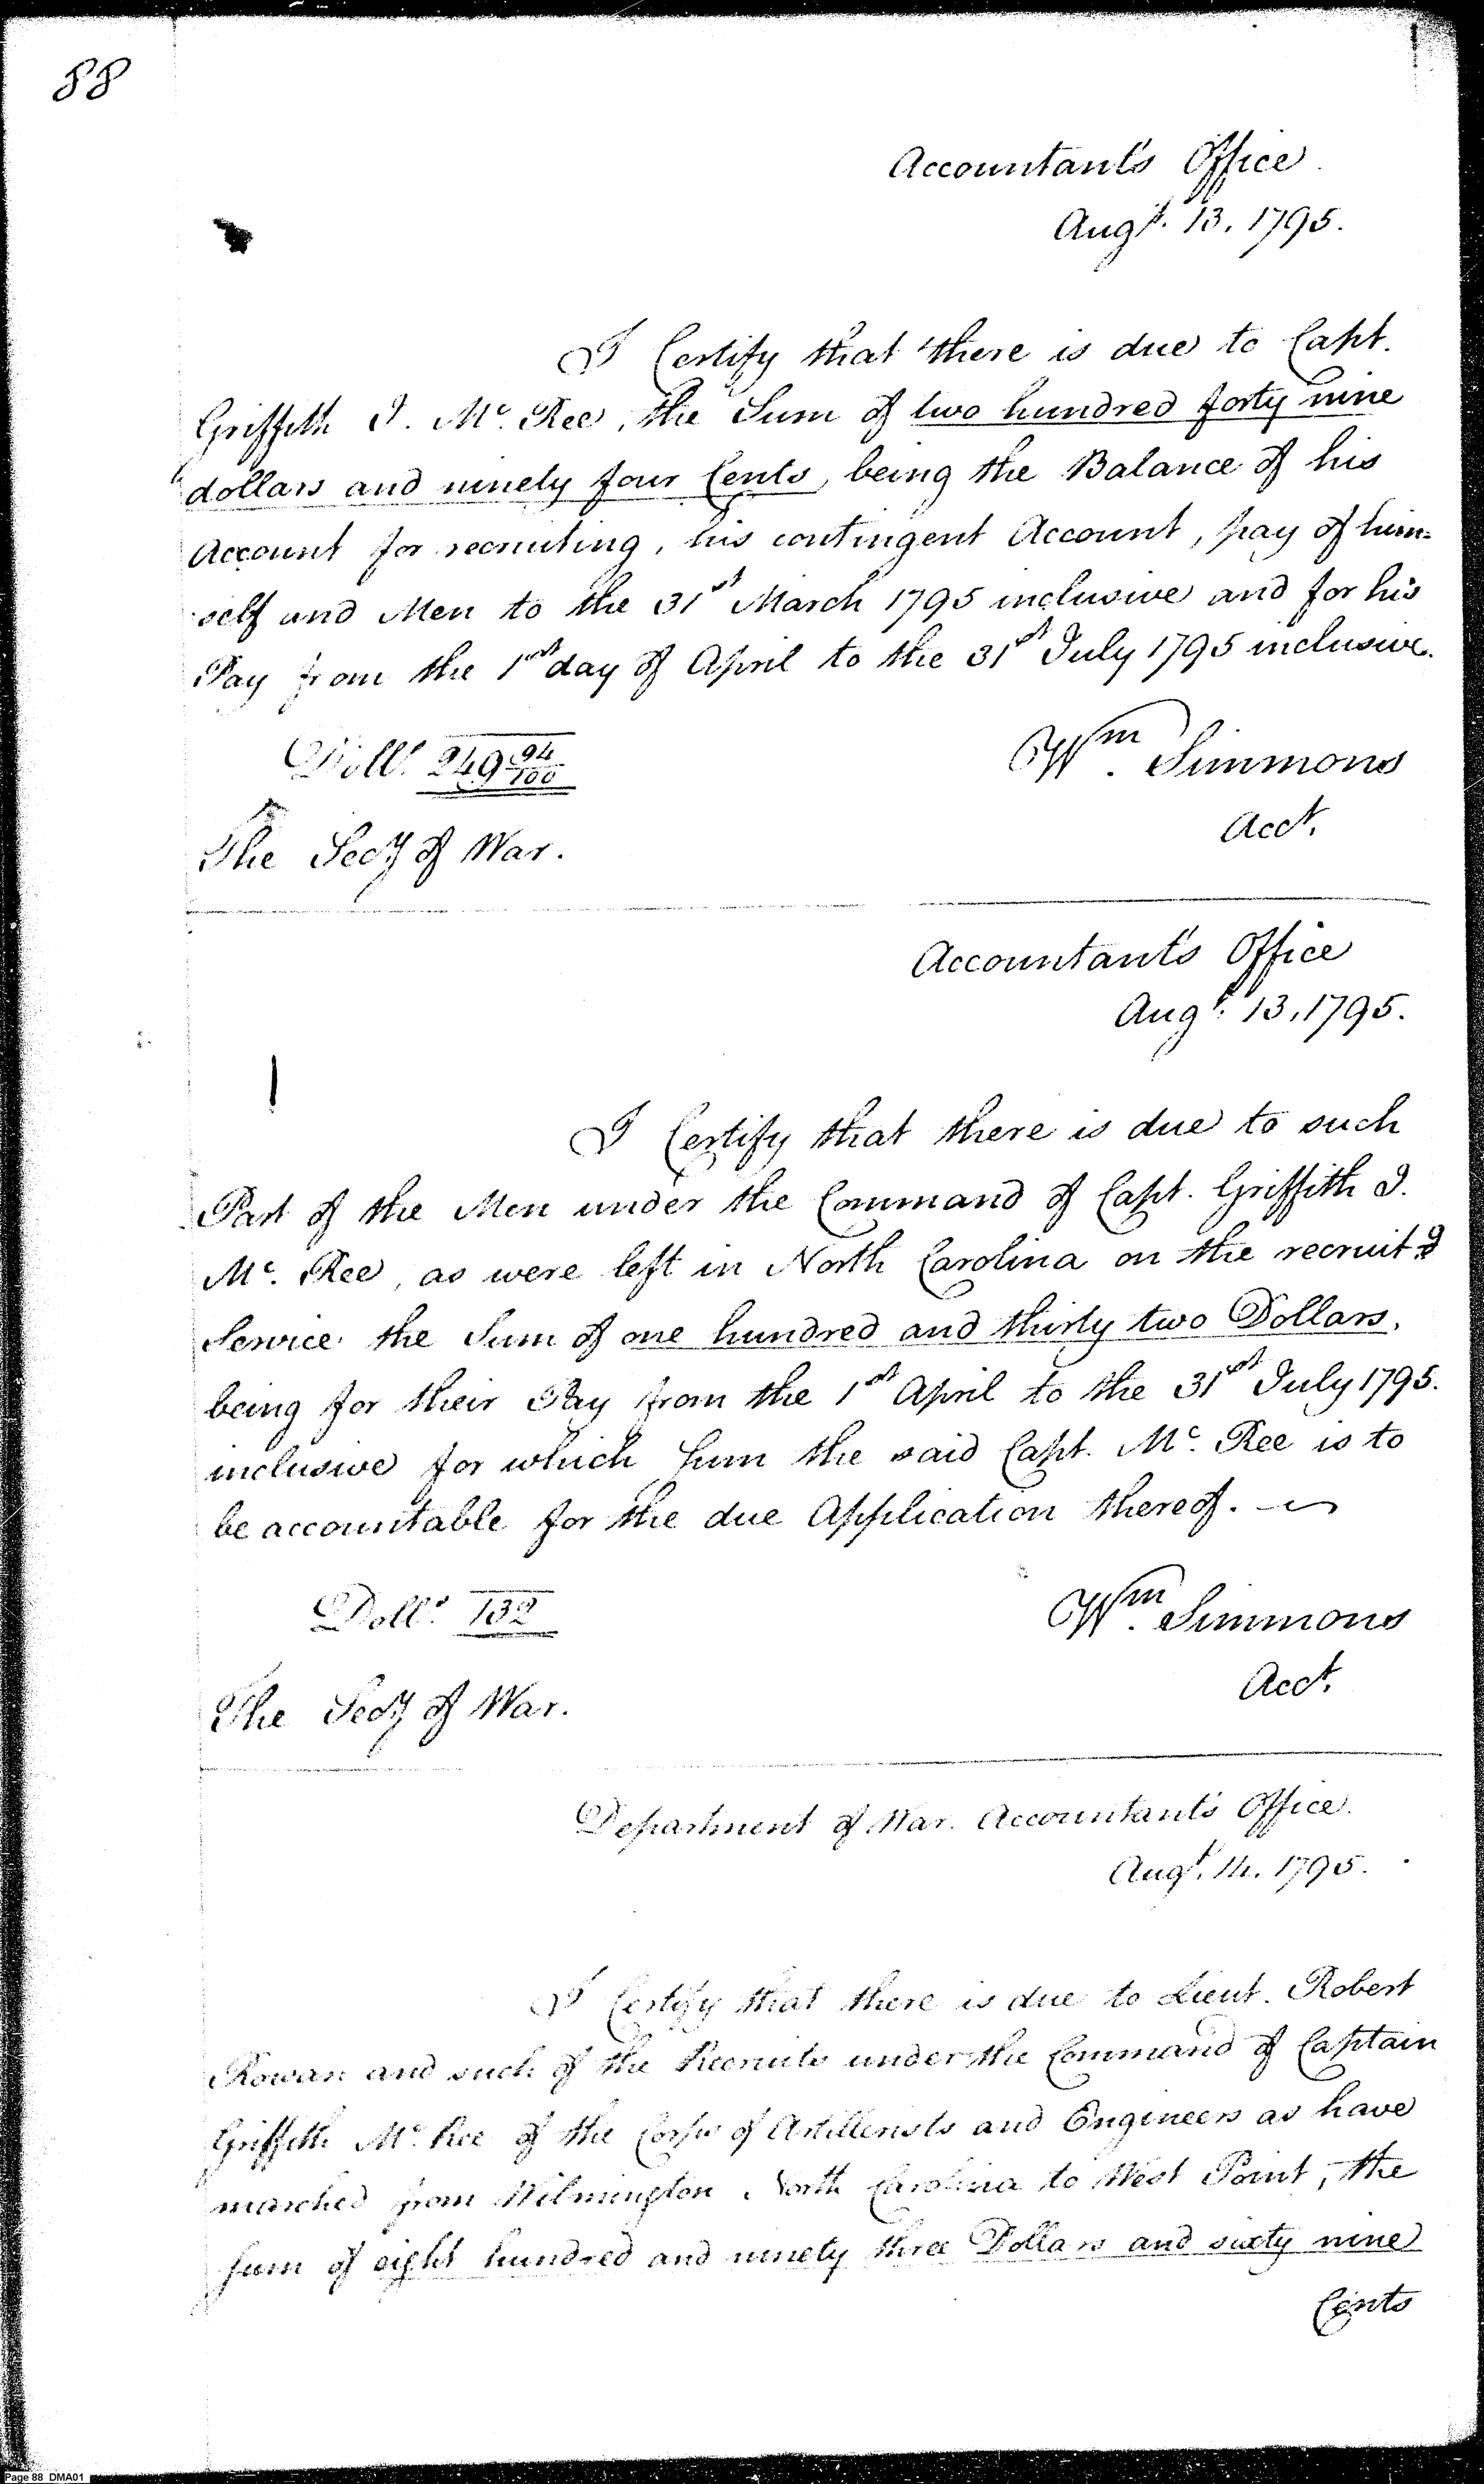 88
Accountant's Office
Augt. 13. 1795.
I Certify that there is due to Capt.
Griffith J. Mc. Ree, the Sum of two hundred forty nine
dollars and ninety four Cents, being the Balance of his
Account for recruiting, his contingent Account, pay of him=
self and Men to the 31st March 1795 inclusive and for his
Pay from the 1st day of April to the 31st July 1795 inclusive.
Dolls. 249 94/100
Wm. Simmons
Acct.
The Secy of War.
Accountant's Office
Augt. 13, 1795.
I Certify that there is due to such
Part of the Men under the Command of Capt. Griffith J.
Mc. Ree, as were left in North Carolina on the recruitg
Service the Sum of one hundred and thirty two Dollars,
being for their Pay from the 1st April to the 31st July 1795.
inclusive for which Sum the said Capt. Mc. Ree is to
be accountable for the due Application thereof.
Dolls. 132
Wm. Simmons
Acct.
The Secy of War.
Department of War. Accountant's Office.
Augt. 14. 1795.
I Certify that there is due to Lieut. Robert
Rowan and such of the Recruits under the Command of Captain
Griffith Mc. Ree of the Corps of Artillerists and Engineers as have
marched from Wilmington North Carolina to West Point, the
Sum of eight hundred and ninety three Dollars and sixty nine
Cents
Page 88 DMA01